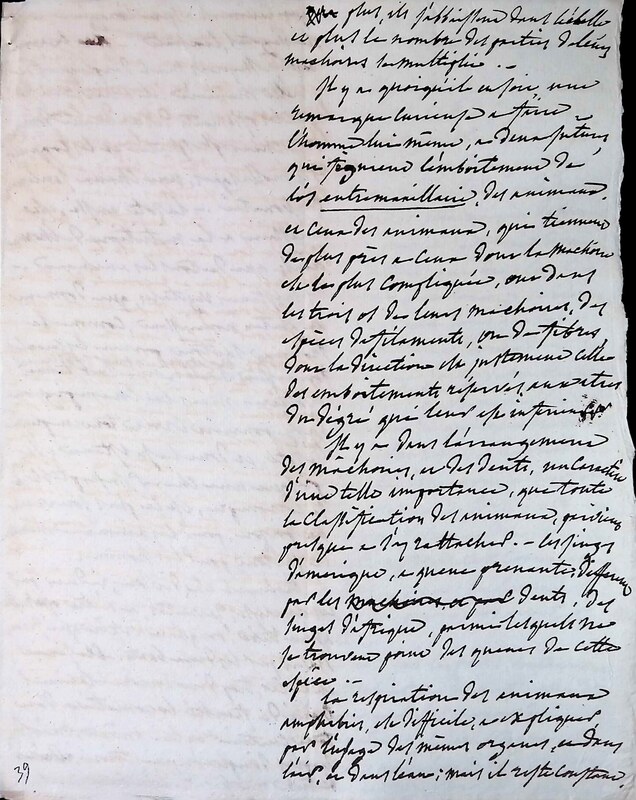 plus, ils s'abbaissent dans l'échelle
et plus le nombre des parties de leurs
machoires se multiplie. –
Il y a quoiqu'il en soit, une
remarque curieuse a faire
l'homme lui même, a deux sutures,
qui figurent l'emboitement de
l'os entremaxillaire, des animaux.
et ceux des animaux, qui tiennent
de plus près a ceux dont la machoire
est la plus compliquée, ont dans
les trois os de leurs machoires, des
espèces de filaments, ou de fibres,
dont la direction est justement celle
des emboitements réservés aux etres
du dégré qui leur est inférieur
Il y a dans l'arrangement
des machoires, et des dents, un caractère
d'une telle importance, que toute
la classification des animaux, parvient
presque a s'y rattacher. – les singes
d'amérique, a queue prenante, diffèrent
par les machoires et par dents, des
singes d'afrique, parmi lesquels ne
se trouvent point des queues de cette
espèce. –
la respiration des animaux
amphibies, est difficile, a expliquer,
par l'usage des mêmes organes, et dans
l'air, et dans l'eau; mais il reste constant,
39